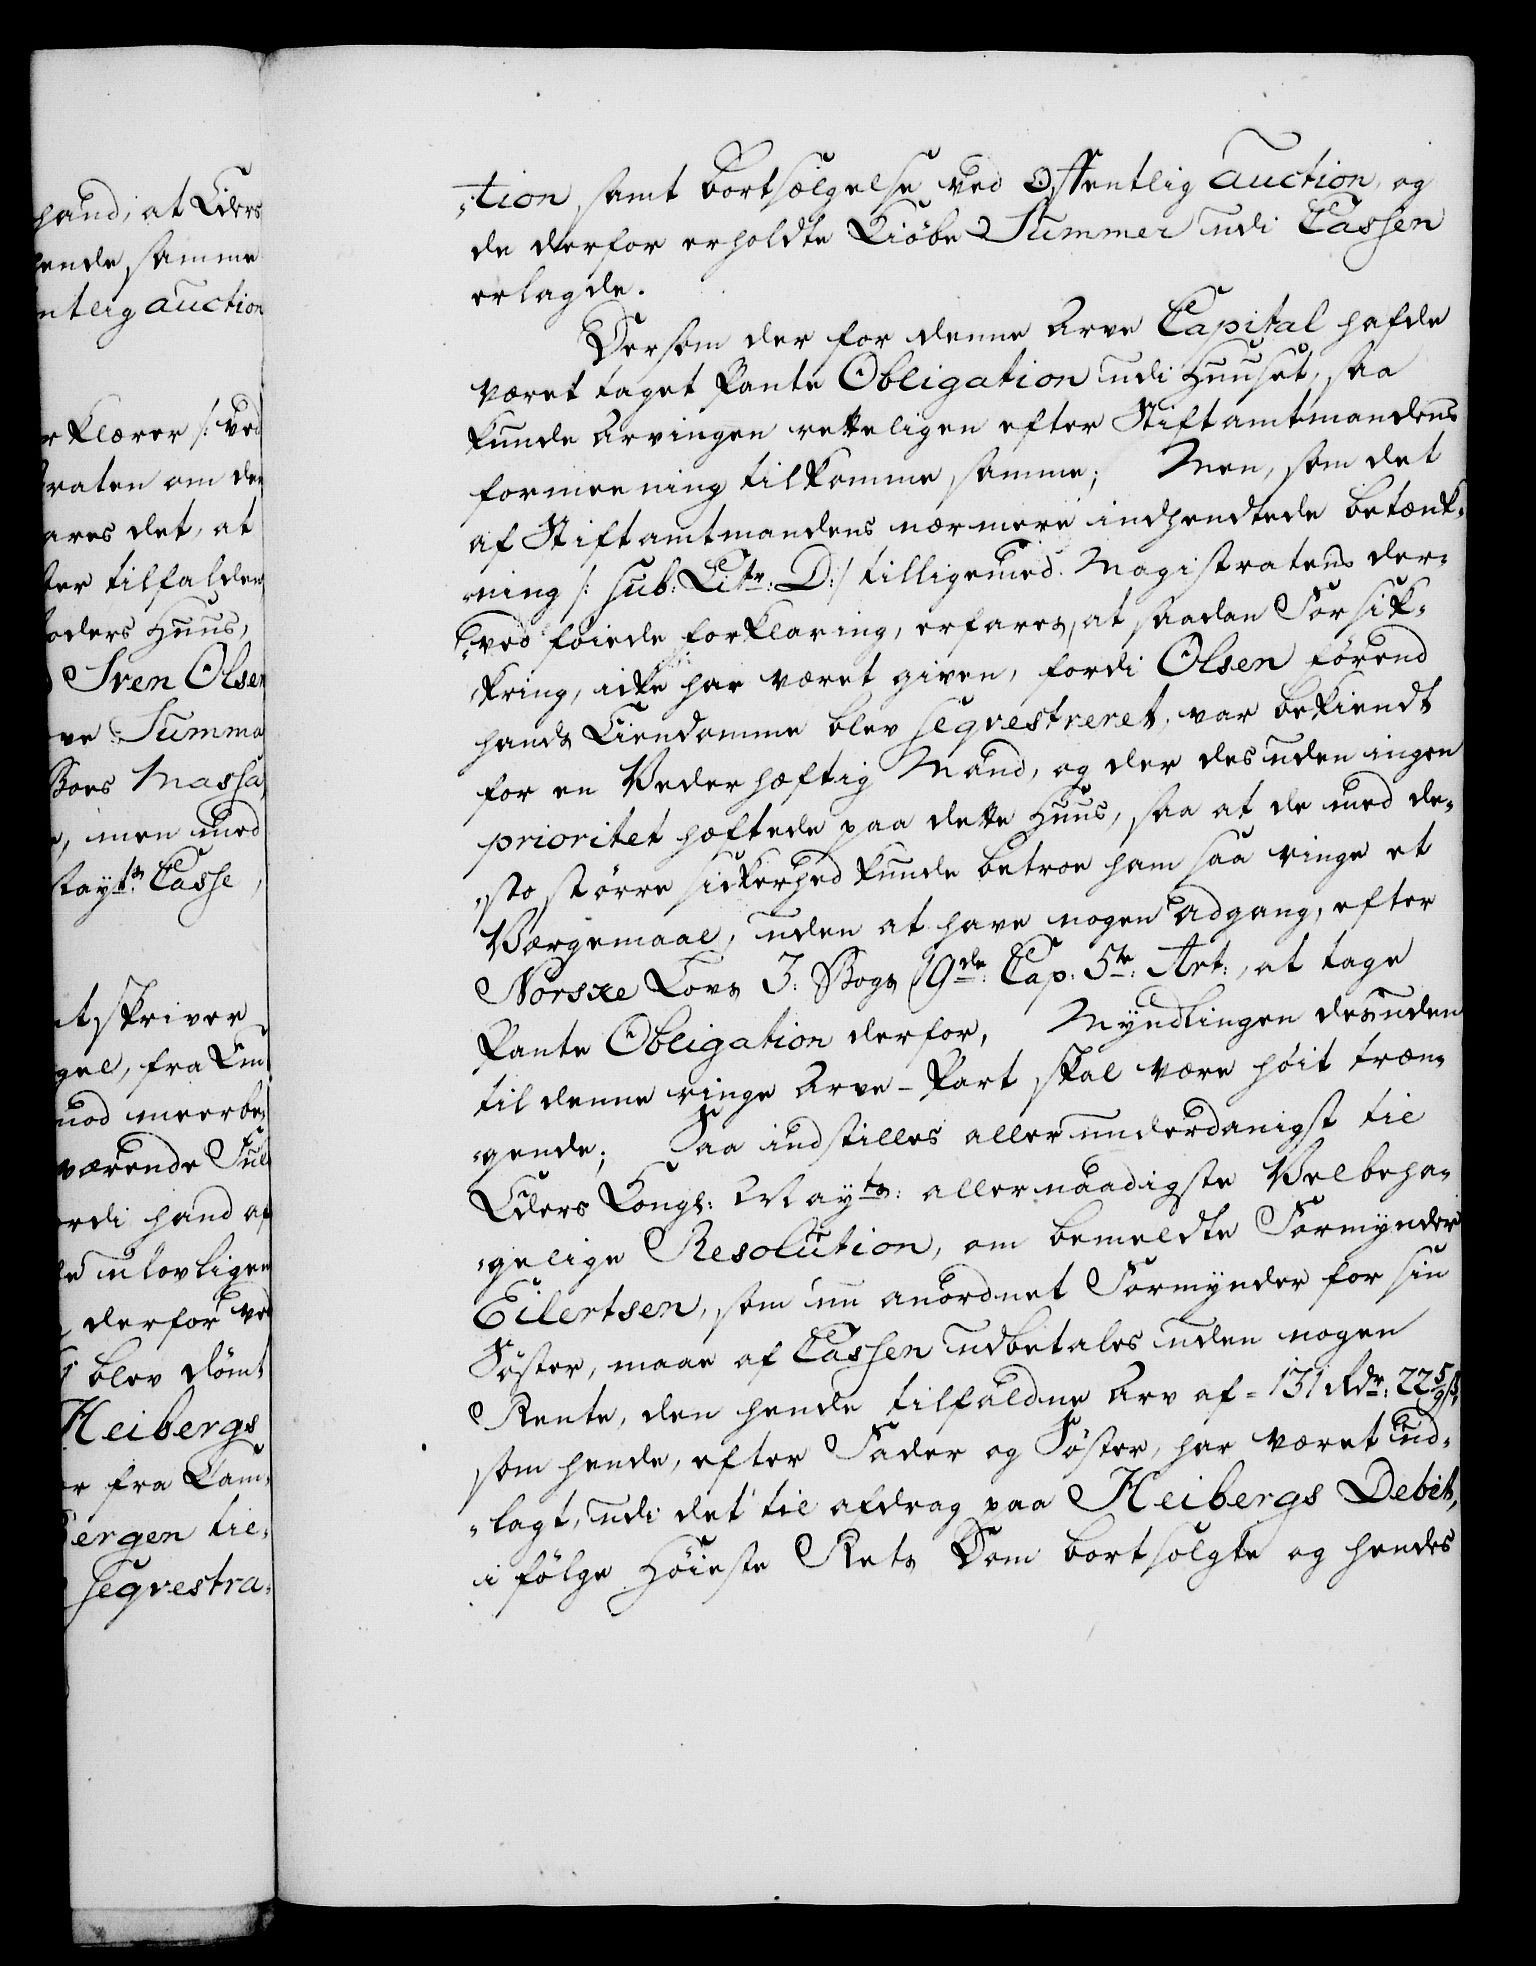 hand, at Eders
hende, samme
ntlig auction
rklærer /: ved
traten om den
ares det, at
ter tilfalden
oders Huus,
Sven Olsen
ve Summa
Boes Massa,
, men med
Mayts: Casse,
t skriver
gel, fra
mod meerbe¬
værende
ordi hand af
ulovligen
derfor ved
blev dømt
Heibergs
r fra Cam¬
Bergen til¬
seqvestra¬
¬tion, samt bortsælgelse ved offentlig auction, og
de derfor erholdte Kiøbe Summer udi Cassen
erlagde.
Dersom der for denne Arve Capital hafde
været taget Pante Obligation udi Huuset, saa
kunde Arvingen retteligen efter Stiftamtmandens
formeening tilkomme samme; Men, som det
af Stiftamtmandens nærmere indhendtede betænk¬
¬ning /: sub: Litr: D:/ tilligemed Magistratens der¬
¬ved føiede forklaring, erfares, at saadan Forsik¬
¬kring, icke har været given, fordi Olsen førend
hands Eiendomme blev seqvestreret, var bekiendt
for en Vederhæftig Mand, og der desuden ingen
prioritet hæftede paa dette Huus, saa at de med de¬
¬sto større sickerhed kunde betroe ham saa ringe et
Værgemaal, uden at have nogen adgang, efter
Norske Lovs 3: Bogs 19de: Cap: 5te: Art:, at tage
Pante Obligation derfor, Myndlingen desuden
til denne ringe Arve-Part skal være høit træn¬
¬gende; Saa indstilles allerunderdanigst til
Eders Kongl: Mayts: allernaadigste Velbeha¬
¬gelige Resolution, om bemeldte Formynder
Eilertsen, som nu anordnet Formynder for sin
Søster, maae af Cassen udbetales uden nogen
Rente, den hende tilfaldne Arv af = 131 Rdr: 22 5/9 s,
som hende, efter Fader og Søster, har været ud¬
¬lagt, udi det til afdrag paa Heibergs Debet,
i følge Høieste Rets Dom bortsolgte og hendes